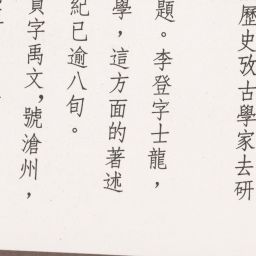 歷史攷古學家去研
題。李登字士龍，
學，這方面的著述
紀已逾八旬。
貢字禹文，號滄州，